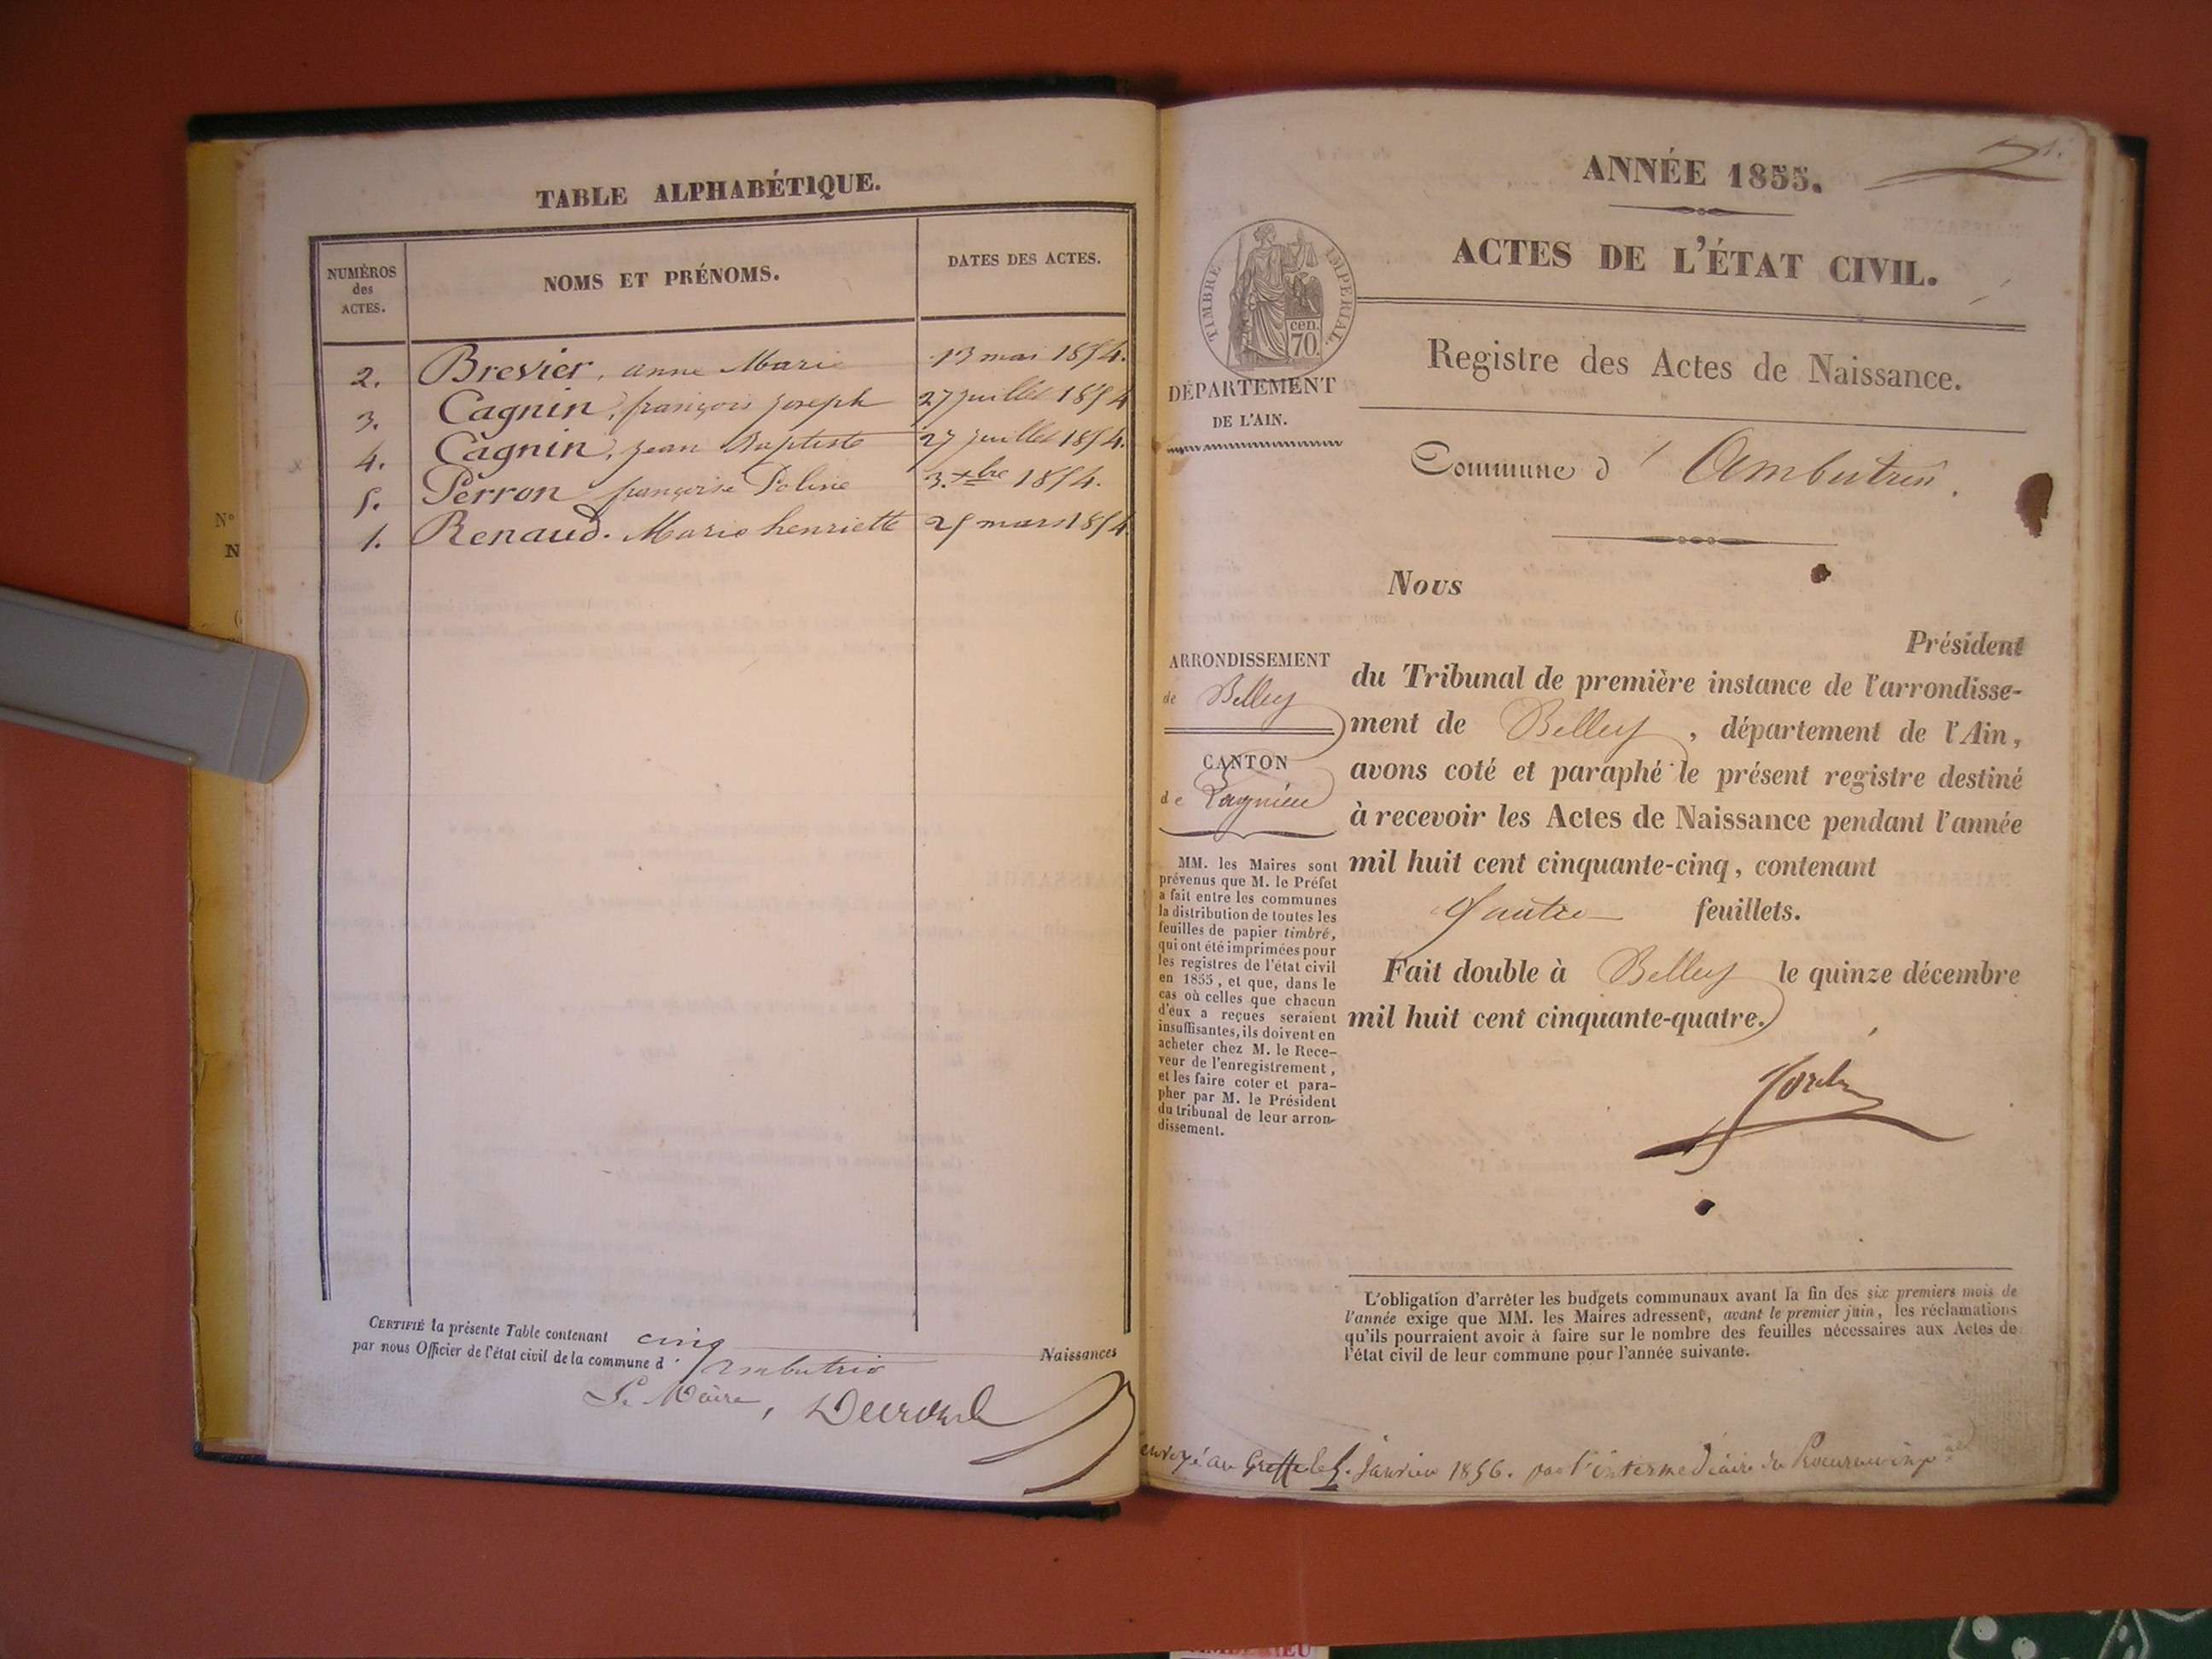 TABLE ALPHABÉTIQUE.
NUMÉROS
des
ACTES.
NOMS ET PRÉNOMS.
DATES DES ACTES.
2. Brevier, anne Marie 13 mai 1854.
3. Cagnin, françois joseph 27 juillet 1854
4. Cagnin, jean Baptiste 27 juillet 1854.
5. Perron françoise Poline 3. xbre 1854.
1. Renaud. Marie henriette 25 mars 1854
CERTIFIÉ la présente Table contenant cinq Naissances
par nous Officier de l'état civil de la commune d' ambutrix
Le Maire,
ANNÉE 1855.
ACTES DE L'ÉTAT CIVIL.
TIMBRE IMPERIAL.
cen.
70.
DÉPARTEMENT
DE L'AIN.
Registre des Actes de Naissance.
Commune d' Ambutrix.
Nous
Président
du Tribunal de première instance de l'arrondisse-
ment de Belley, département de l'Ain,
avons coté et paraphé le présent registre destiné
à recevoir les Actes de Naissance pendant l'année
mil huit cent cinquante-cinq, contenant
quatre feuillets.
Fait double à Belley le quinze décembre
mil huit cent cinquante-quatre.
ARRONDISSEMENT
de Belley
CANTON
de Lagnieu
MM. les Maires sont
prévenus que M. le Préfet
a fait entre les communes
la distribution de toutes les
feuilles de papier timbré,
qui ont été imprimées pour
les registres de l'état civil
en 1855, et que, dans le
cas où celles que chacun
d'eux a reçues seraient
insuffisantes, ils doivent en
acheter chez M. le Rece-
veur de l'enregistrement,
et les faire coter et para-
pher par M. le Président
du tribunal de leur arron-
dissement.
L'obligation d'arrêter les budgets communaux avant la fin des six premiers mois de
l'année exige que MM. les Maires adressent, avant le premier juin, les réclamations
qu'ils pourraient avoir à faire sur le nombre des feuilles nécessaires aux Actes de
l'état civil de leur commune pour l'année suivante.
envoyé au Greffe le 5. Janvier 1856. par l'intermediaire du Procureur impal